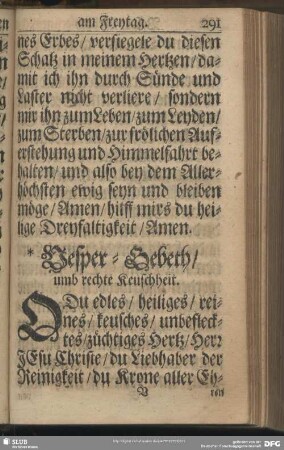 am Freytag. 291
nes Erbes/ versiegele du diesen
Schatz in meinem Hertzen/ da-
mit ich ihn durch Sünde und
Laster nicht verliere/ sondern
mir ihn zum Leben/ zum Leyden/
zum Sterben/ zur frölichen Auf-
erstehung und Himmelfahrt be-
halten/ und also bey dem Aller-
höchsten ewig seyn und bleiben
möge/ Amen/ hilff mirs du hei-
lige Dreyfaltigkeit/ Amen.
* Vesper-Gebeth/
umb rechte Keuschheit.
O Du edles/ heiliges/ rei-
nes/ keusches/ unbefleck-
tes/ züchtiges Hertz/ Herr
JEsu Christe/ du Liebhaber der
Reinigkeit/ du Krone aller Eh-
ren
SLUB